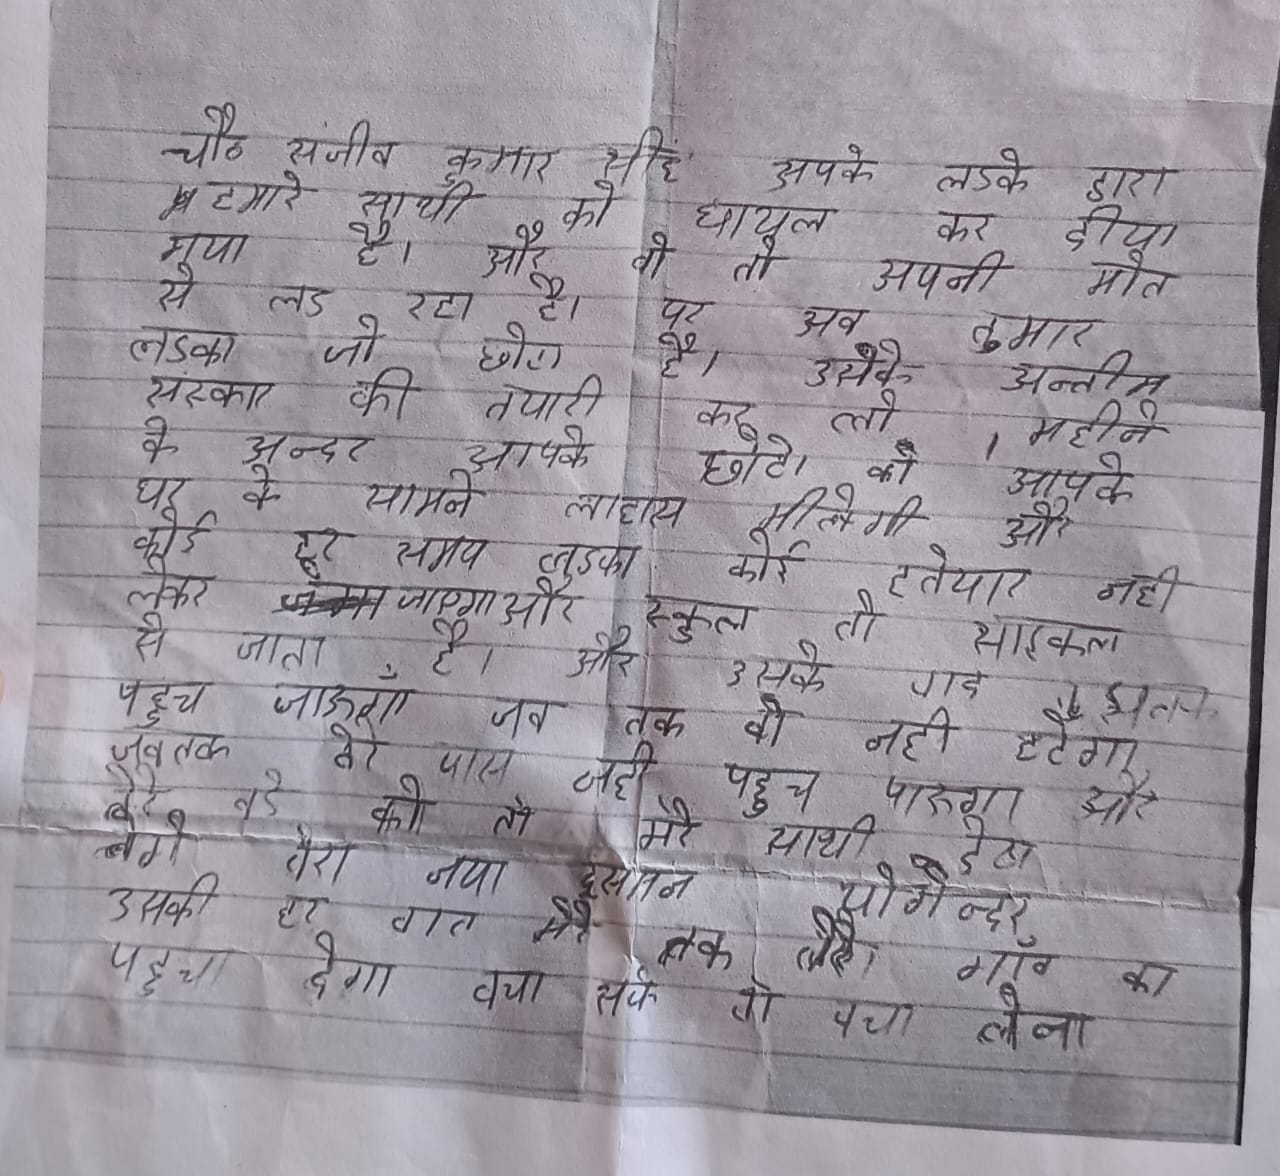 चौ० संजीव कुमार सींह अपके लडके द्वारा
हमारे साथी को घायल कर दीया
गया है। और वो तो अपनी मौत
से लड रहा है। पर अब तुमार
लडका जो छोटा है। उसके अन्तीम
संस्कार की तयारी कर लो, महीने
के अन्दर आपके छोटे। को आपके
घर के सामने लाहास मीलेगी और
कोई हर समय लडका कोई हतेयार नही
लेकर जाएगा और स्कुल तो साइकल
से जाता है। और उसके
पहुच जाऊगाँ जब तक वो नही हटेगा
जबतक तेरे पास नही पहुच पाऊगा और
तेरे बडे को तो मेरे साथी हटा
लेगे तेरा नया दुसमन योगेन्दर
उसकी हर बात मेरे तक तेरे। गाँव का
पहुचा देगा बचा सके तो बचा लेना